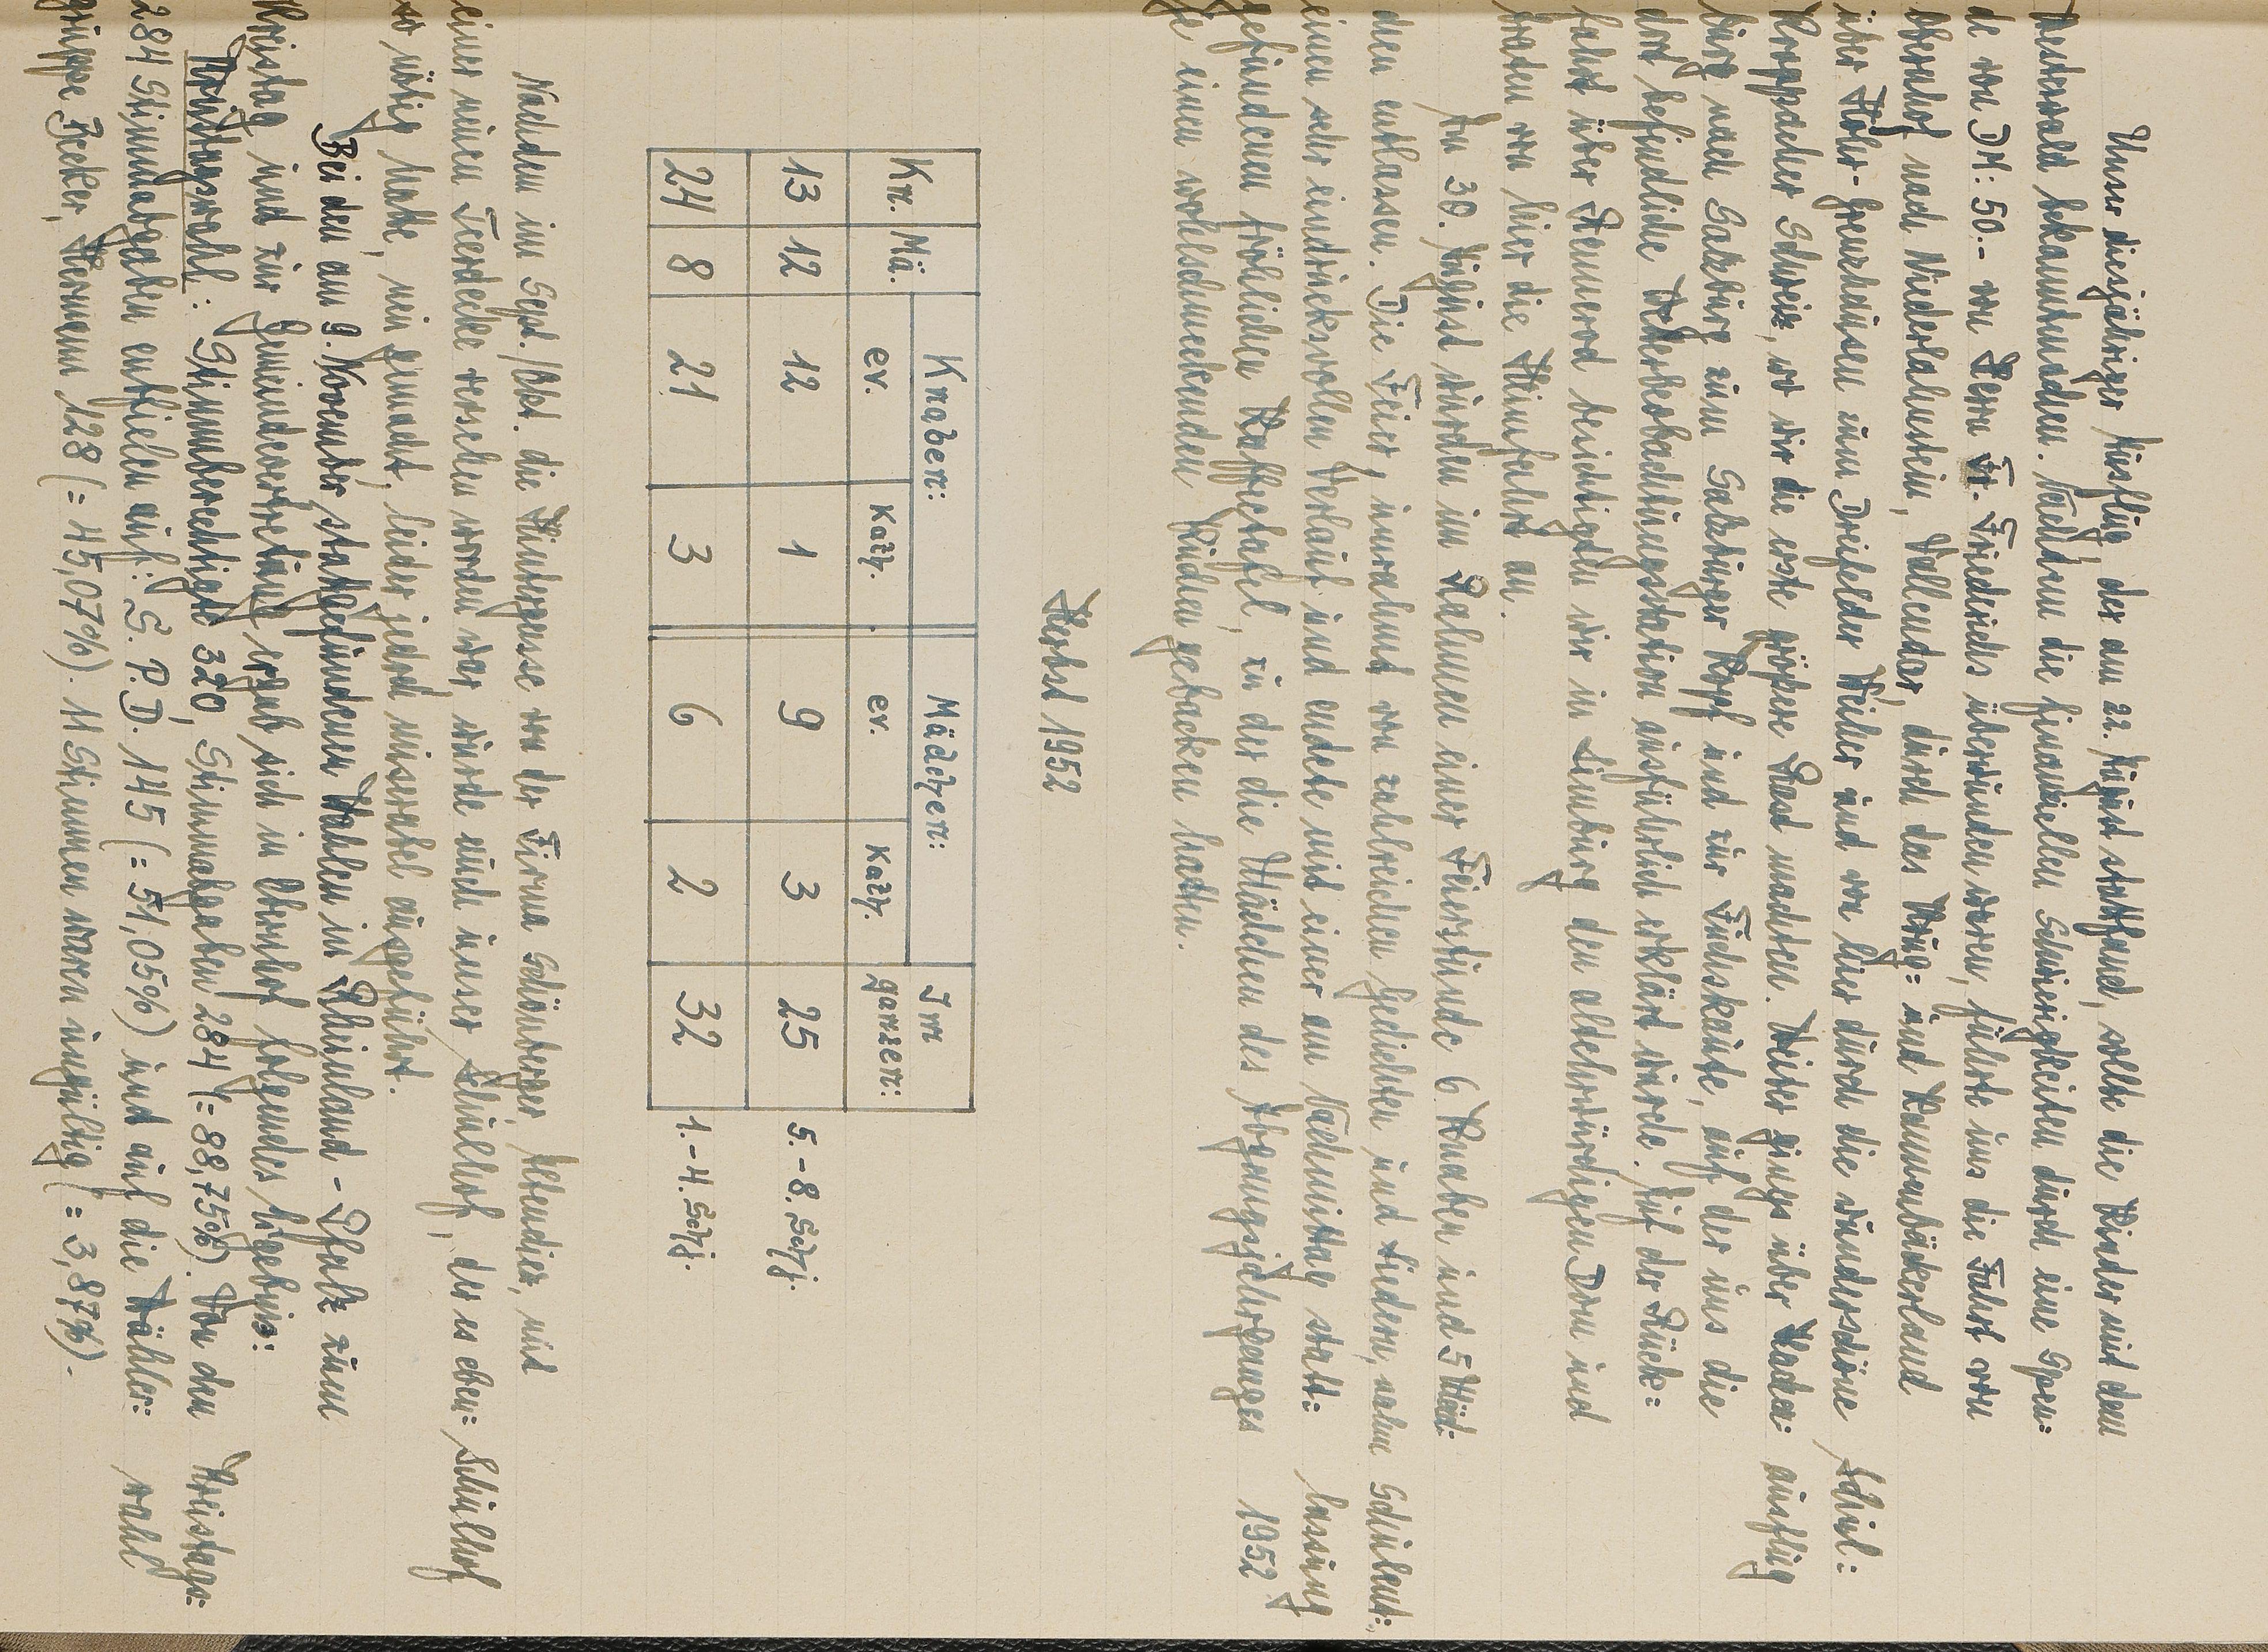 Unser diesjähriger Ausflug, der am 22. August stattfand, sollte die Kinder mit dem
Westerwald bekanntmachen. Nachdem die finanziellen Schwierigkeiten durch eine Spen=
de von DM: 50.- von Herrn Fr. Friedrichs überwunden waren, führte uns die Fahrt von
Obernhof nach Niederlahnstein, Vallendar, durch das Krug= und Kannenbäckerland
über Höhr-Grenzhausen zum Dreifelder Weiher und von hier durch die wunderschöne
Kroppacher Schweiz, wo wir die erste größere Rast machten. Weiter gings über Hachen=
burg nach Salzburg zum Salzburger Kopf und zur Fuchskaute, auf der uns die
dort befindliche Wetterbeobachtungsstation ausführlich erklärt wurde. Auf der Rück=
fahrt über Rennerod besichtigten wir in Limburg den altehrwürdigen Dom und
traten von hier die Heimfahrt an.
Schul=
ausflug
Am 30. August wurden im Rahmen einer Feierstunde 6 Knaben und 5 Mäd=
chen entlassen. Die Feier, umrahmt von zahlreichen Gedichten und Liedern, nahm
einen sehr eindrucksvollen Verlauf und endete mit einer am Nachmittag statt=
gefundenen fröhlichen Kaffeetafel, zu der die Mädchen des Abgangsjahrganges
je einen wohlschmeckenden Kuchen gebacken hatten.
Schulent=
lassung
1952
Herbst 1952
Kn. Mä. Knaben: Mädchen: Im
ev. Kath. ev. Kath. ganzen:
13 12 12 1 9 3 25 5.-8. Schj.
24 8 21 3 6 2 32 1.-4. Schj.
Nachdem im Sept./Okt. die Hintergasse von der Firma Schönberger, Altendiez, mit
einer neuen Teerdecke versehen worden war, wurde auch unser Schulhof, der es eben=
so nötig hatte, neu gemacht, leider jedoch miserabel ausgeführt.
Schulhof
Bei den am 9. November stattgefundenen Wahlen in Rheinland-Pfalz zum
Kreistag und zur Gemeindevertretung ergab sich in Obernhof folgendes Ergebnis:
Kreistagswahl: Stimmberechtigte 320, Stimmabgaben 284 (= 88,75%). Von den
284 Stimmabgaben entfielen auf: S.P.D. 145 (= 51,05%) und auf die Wähler=
gruppe Becker, Hermann 128 (= 45,07%). 11 Stimmen waren ungültig (= 3,87%).
Kreistags=
wahl